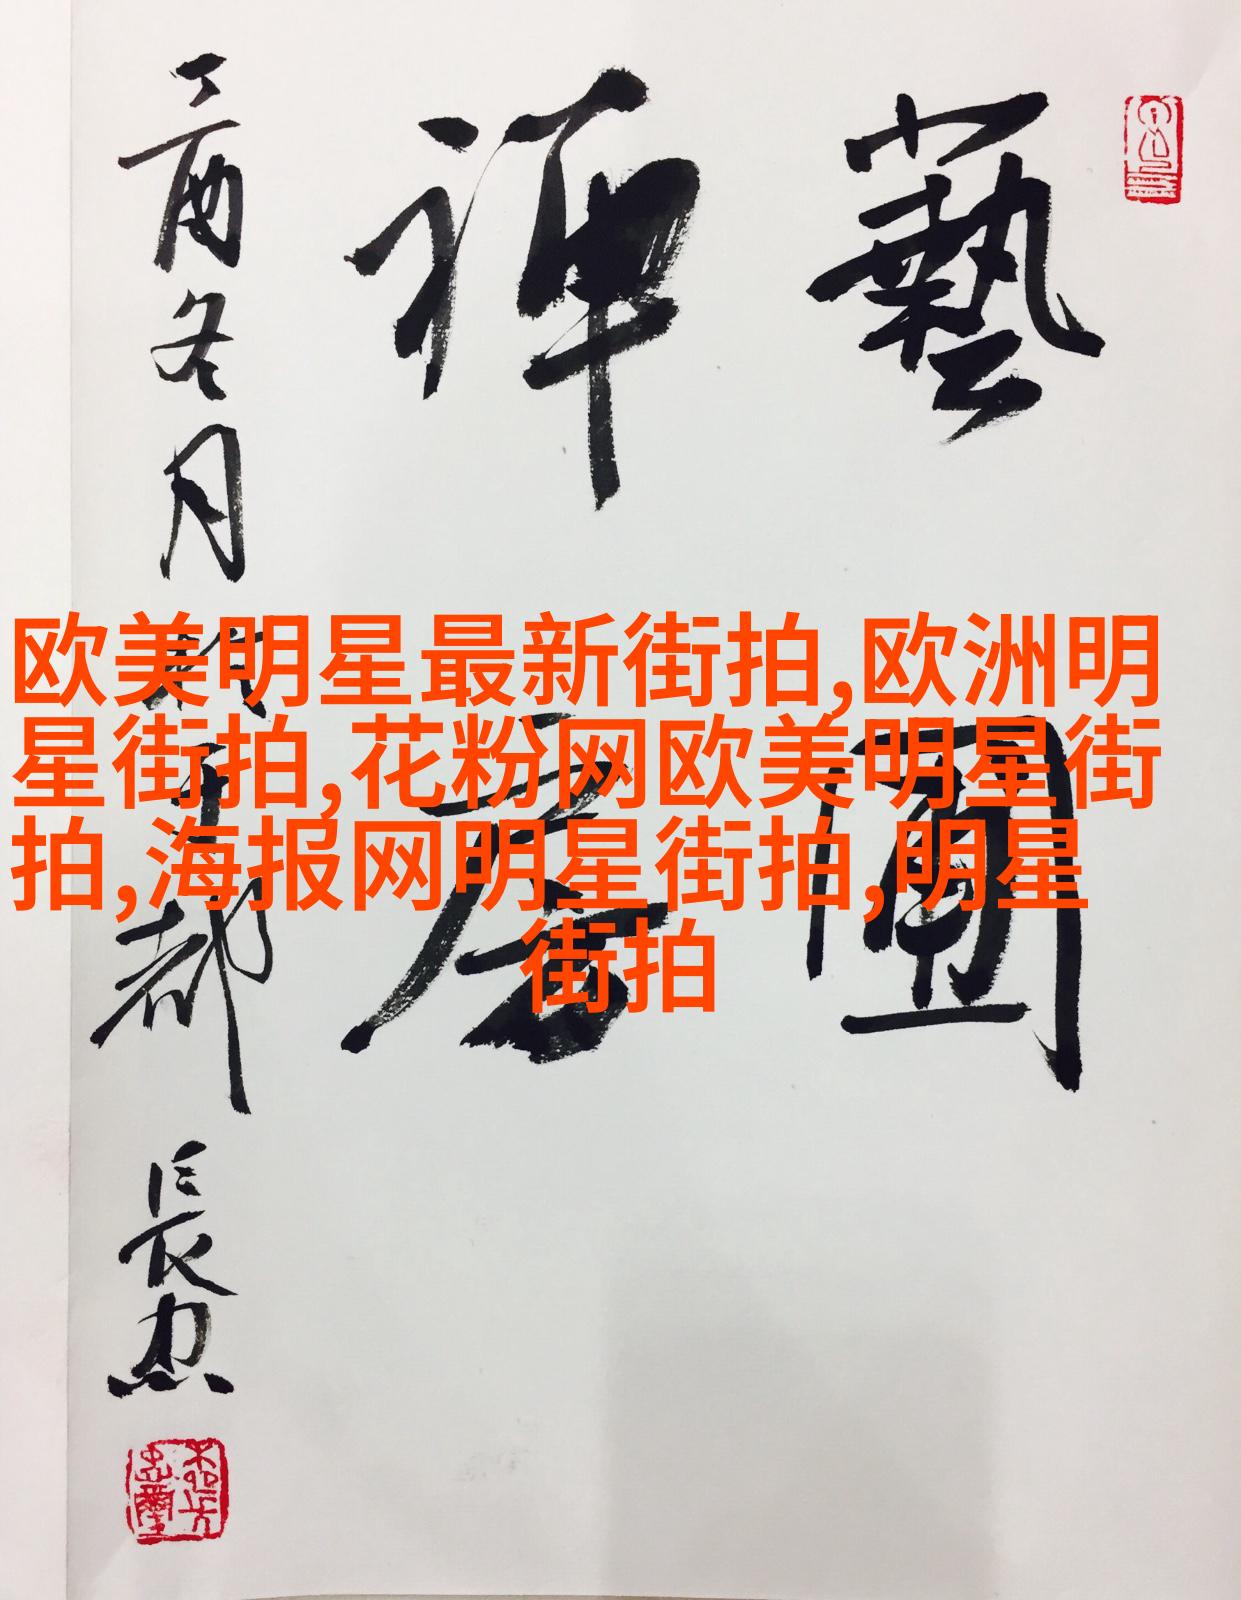 欧美明星最新街拍,欧洲明
星街拍,花粉网欧美明星街
拍,海报网明星街拍,明星
街拍
藝
禪
丁酉冬月
都
長